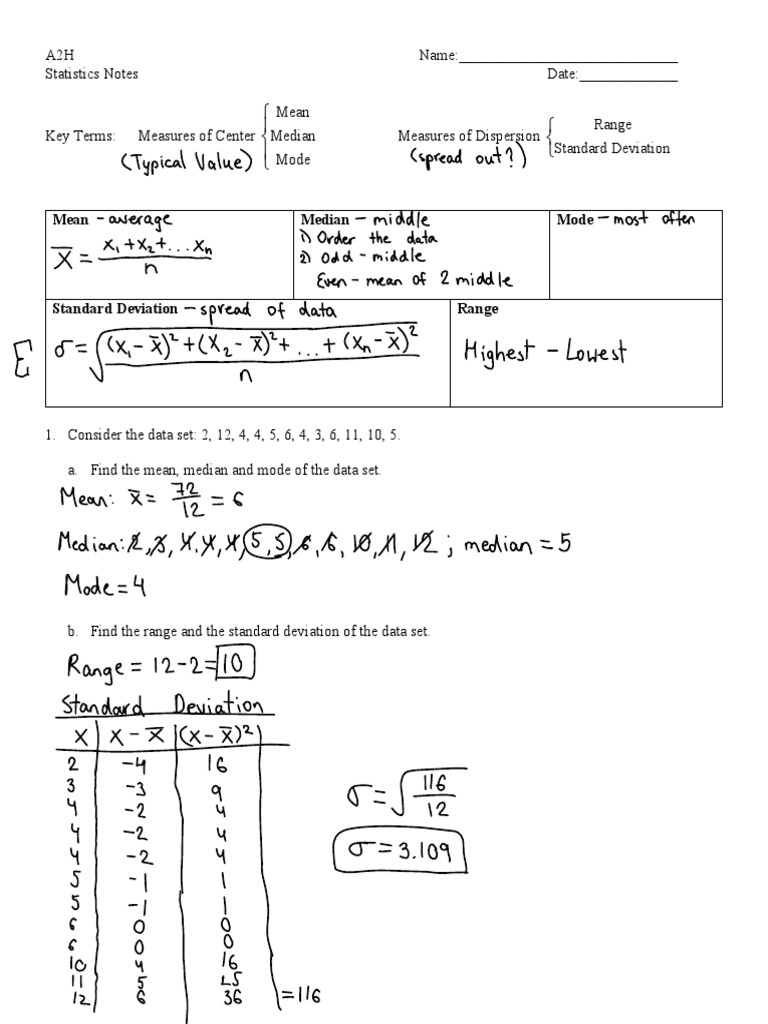 A2H Name:____________________________
Statistics Notes Date:_____________
Mean
Range
Key Terms: Measures of Center { Median Measures of Dispersion {
Standard Deviation
(Typical Value) Mode (spread out?)
Mean - average
x̄ = x₁+x₂+...xₙ / n
Median - middle
1) Order the data
2) Odd - middle
Even - mean of 2 middle
Mode - most often
Standard Deviation - spread of data
E σ = √((x₁-x̄)²+(x₂-x̄)²+...+(xₙ-x̄)² / n)
Range
Highest - Lowest
1. Consider the data set: 2, 12, 4, 4, 5, 6, 4, 3, 6, 11, 10, 5.
a. Find the mean, median and mode of the data set.
Mean: x̄ = 72/12 = 6
Median: 2, 3, 4, 4, 4, 5, 5, 6, 6, 10, 11, 12 ; median = 5
Mode = 4
b. Find the range and the standard deviation of the data set.
Range = 12-2 = 10
Standard Deviation
x | x - x̄ | (x - x̄)²
2 -4 16
3 -3 9
4 -2 4
4 -2 4
4 -2 4
5 -1 1
5 -1 1
6 0 0
6 0 0
10 4 16
11 5 25
12 6 36 = 116
σ = √(116/12)
σ = 3.109